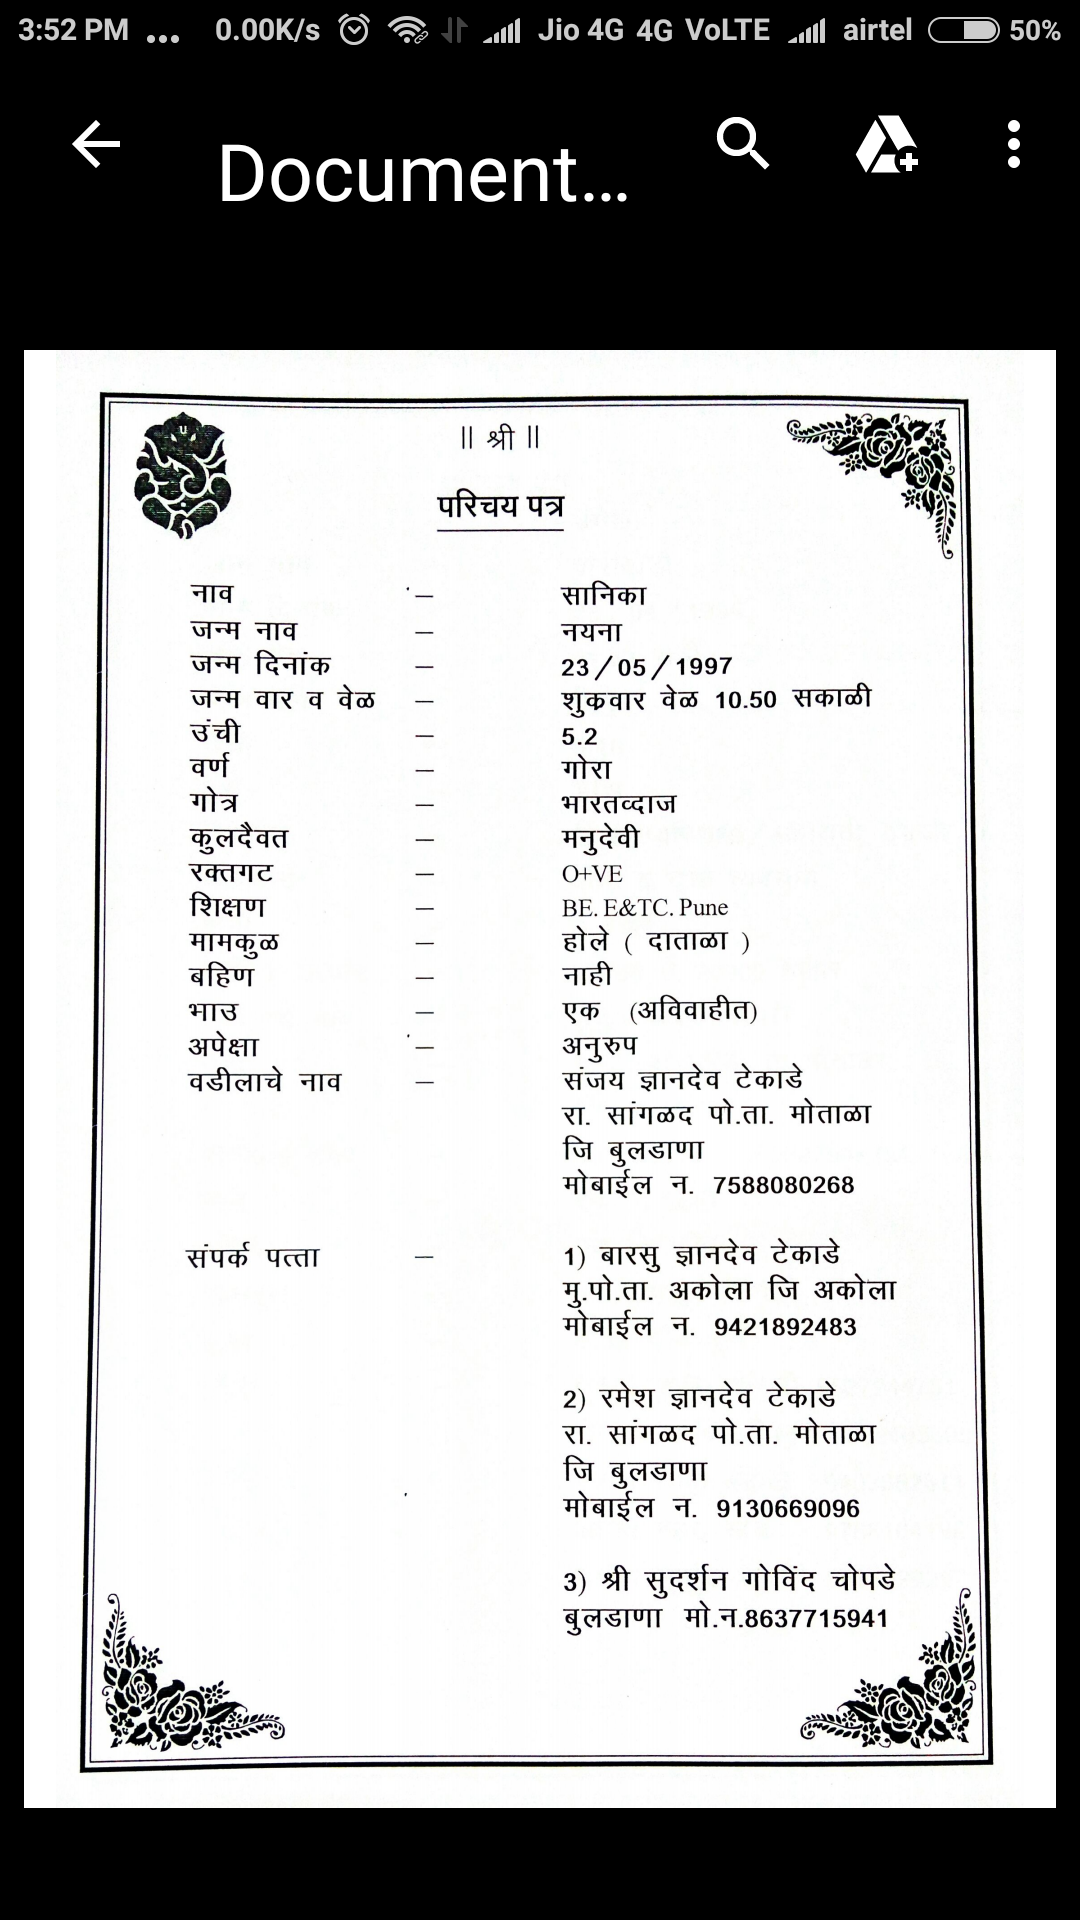 3:52 PM ... 0.00K/s Jio 4G 4G VoLTE airtel 50%
Document...
॥ श्री ॥
परिचय पत्र
नाव – सानिका
जन्म नाव – नयना
जन्म दिनांक – 23/05/1997
जन्म वार व वेळ – शुक्रवार वेळ 10.50 सकाळी
उंची – 5.2
वर्ण – गोरा
गोत्र – भारतव्दाज
कुलदैवत – मनुदेवी
रक्तगट – O+VE
शिक्षण – BE. E&TC. Pune
मामकुळ – होले ( दाताळा )
बहिण – नाही
भाउ – एक (अविवाहीत)
अपेक्षा – अनुरुप
वडीलाचे नाव – संजय ज्ञानदेव टेकाडे
रा. सांगळद पो.ता. मोताळा
जि बुलडाणा
मोबाईल न. 7588080268
संपर्क पत्ता – 1) बारसु ज्ञानदेव टेकाडे
मु.पो.ता. अकोला जि अकोला
मोबाईल न. 9421892483
2) रमेश ज्ञानदेव टेकाडे
रा. सांगळद पो.ता. मोताळा
जि बुलडाणा
मोबाईल न. 9130669096
3) श्री सुदर्शन गोविंद चोपडे
बुलडाणा मो.न.8637715941